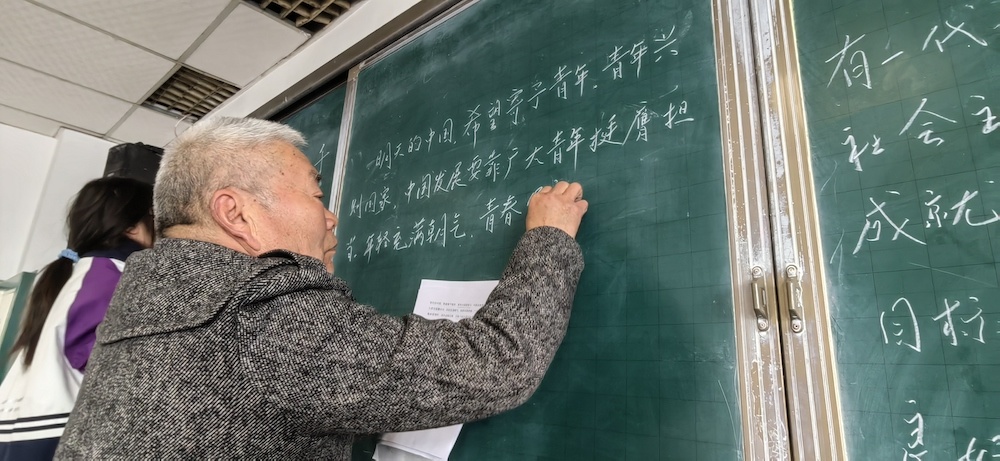 子
明天的中国，希望寄予青年。青年兴
则国家，中国发展要靠广大青年挺膺担
当。年轻充满朝气，青春
有一代
社会主
成就
目标
良好